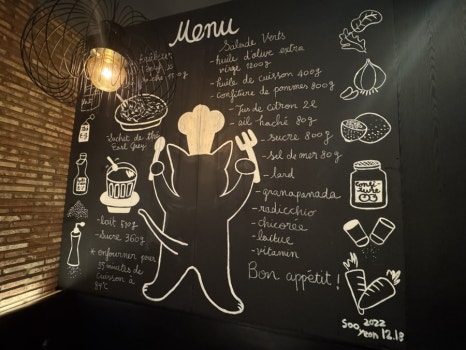 Menu
Salade Verts
- huile d'olive extra
virge 1200g
- huile de cuisson 400g
- Confiture de pommes 800g
- Jus de citron 2L
- ail haché 80g
- sucre 800g
- sel de mer 80g
- lard
- granapanada
- radicchio
- chicoree
- laitue
- vitamin
Bon appétit !
- Sachet de thé
Earl Grey
- lait
- Sucre 360g
* enfourner pour
35 minutes de
Cuisson à
Confi
ture
2022
Soo yeon 12.18